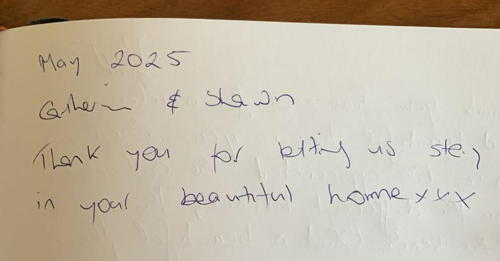 May 2025
Catherin & Shawn
Thank you for letting us stay
in your beautiful home xxx